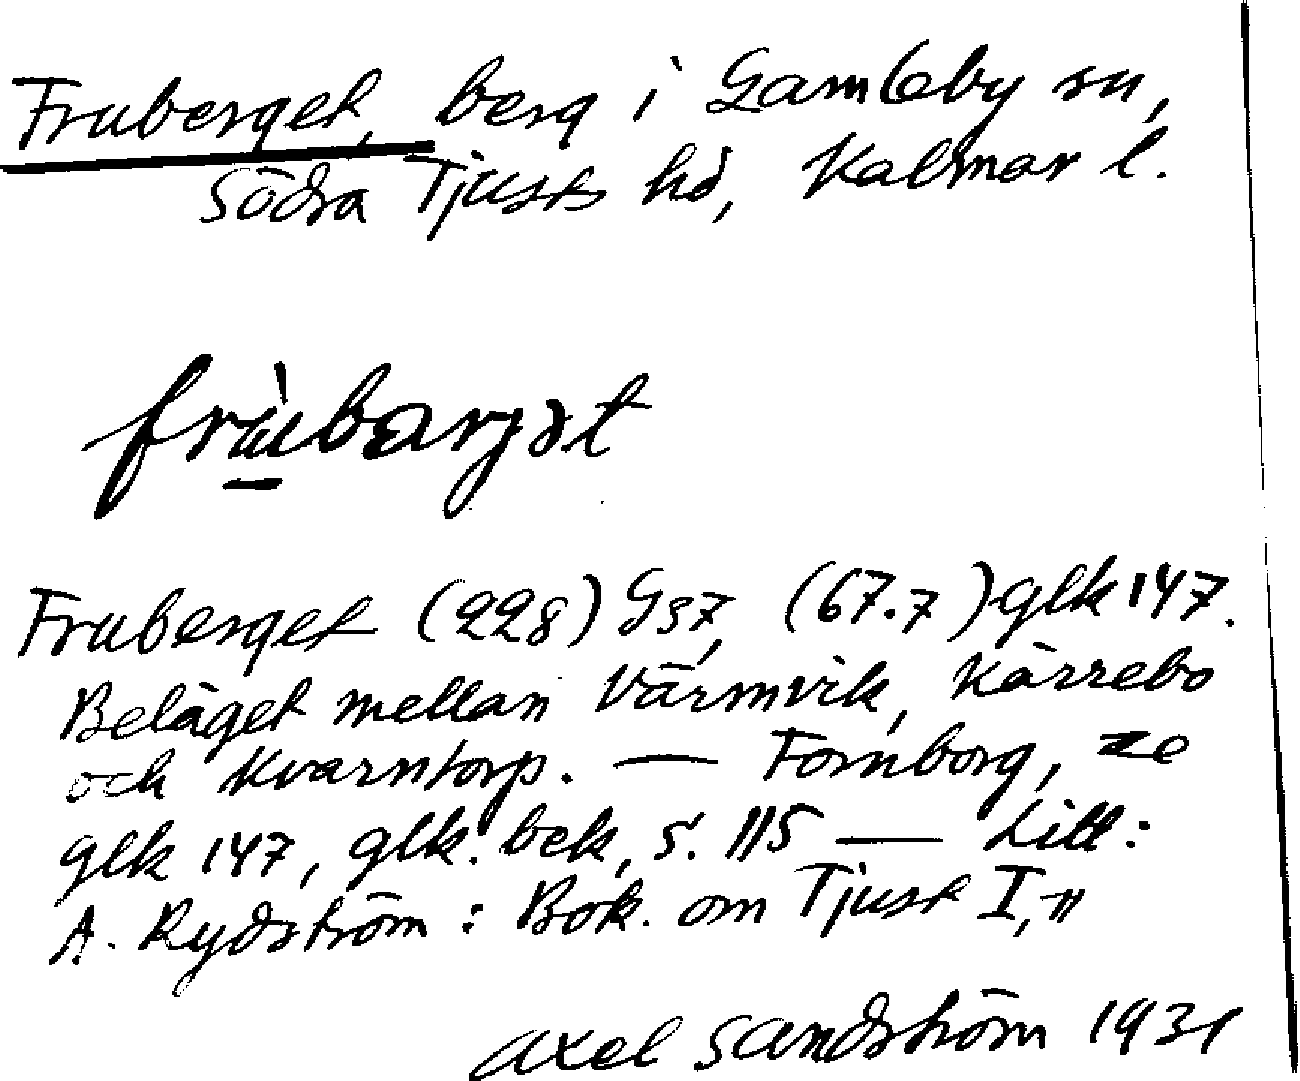 Fruberget, berg i Gamleby sn,
Södra Tjusts hd, Kalmar l.
frùbarjət
Fruberget (228) G37, (67.7) glk 147.
Beläget mellan Värmvik, Kärrebo
och Kvarntorp. — Fornborg, se
glk 147, glk. bek, s. 115 — Litt:
A. Rydström: Bok. om Tjust I, 11
Axel Sandström 1931